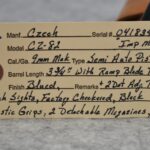 Manf. Czech Serial No. 041839
Model CZ-82 Imp Mark
Cal./Ga. 9mm Mak Type Semi Auto Pist
Barrel Length 3 3/4" With Ramp Blade F
Finish Blued, Remarks + 2 Dot Adj. 
Sights, Factory Checkered, Black
stic Grips, 2 Detachable Magazines,